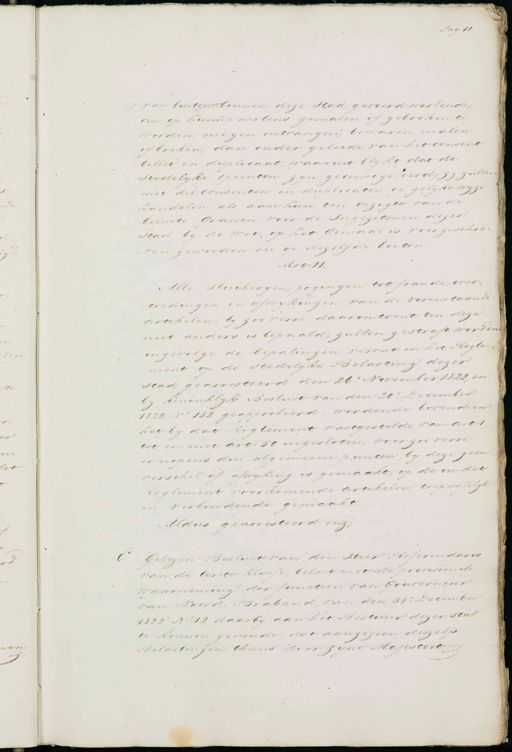 Pag. 11.
van buiten binnen deze Stad gevoerd wordende,
om op hunne molens gemalen of gebroken te
worden mogen ontvangen, bewaren malen
of breken, dan onder geleide van het consent
billet in duplicaat waaruit blijke dat de
Stedelijke zijn zij zullen
met die consenten en duplicaten op gelijke wijze
handelen als aan hun ten opzigte van de
belaste Granen voor de Ingezetenen dezer
Stad bij de Wet op het Gemaal is voorgeschre-
ven geworden en op dezelfde boeten
Art. 11.
Alle sluikerijen, pogingen tot fraude, over-
tredingen en afwijkingen van de vorenstaande
artikelen, bij zoo verre daaromtrent ten deze
niet anders is bepaald, zullen gestraft worden
ingevolge de bepalingen vervat in het Regle-
ment op de Stedelijke Belasting dezer
Stad gearresteerd den 26 November 1822, en
bij Koninklijk Besluit van den 20 December
1822 N 152 geapprobeerd, wordende bovendien
het bij dat Reglement vastgestelde van art 1
tot en met art. 50 ingesloten, voor zoo verre
der algemeene punten bij deze geen
verschil of afwijking is gemaakt op de in dit
Reglement voorkomende artikelen toepasselijk
en verbindende gemaakt
Aldus gearresteerd enz
Gelezen Besluit van den Heer Referendaris
van de Eerste Klasse, belast met de provisionele
waarneming der functien van Gouverneur
van Noord-Braband, van den 31 December
1822 N 12 daarbij aan het Bestuur dezer stad
te kennen gevende, dat aangezien dezelfs
belastingen thans door Zijne Majesteit